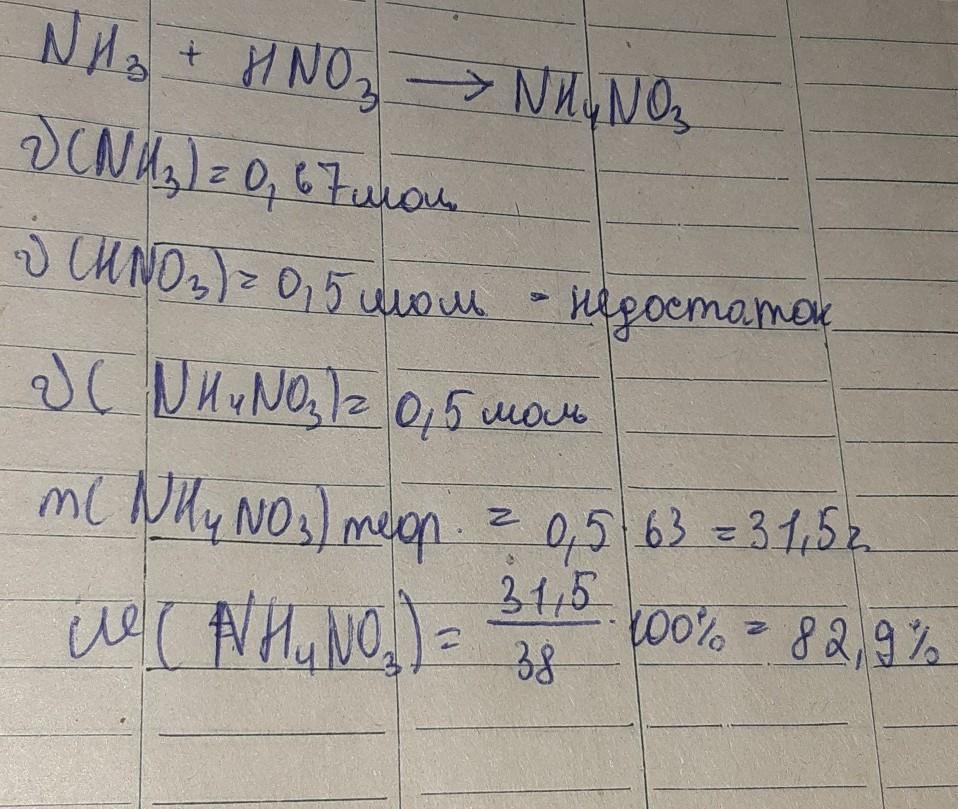 NH₃ + HNO₃ → NH₄NO₃
ν(NH₃) = 0,67 моль
ν(HNO₃) = 0,5 моль - недостаток
ν(NH₄NO₃) = 0,5 моль
m(NH₄NO₃) теор. = 0,5 · 63 = 31,5 г
(NH₄NO₃) = 31,5/38 · 100% = 82,9%